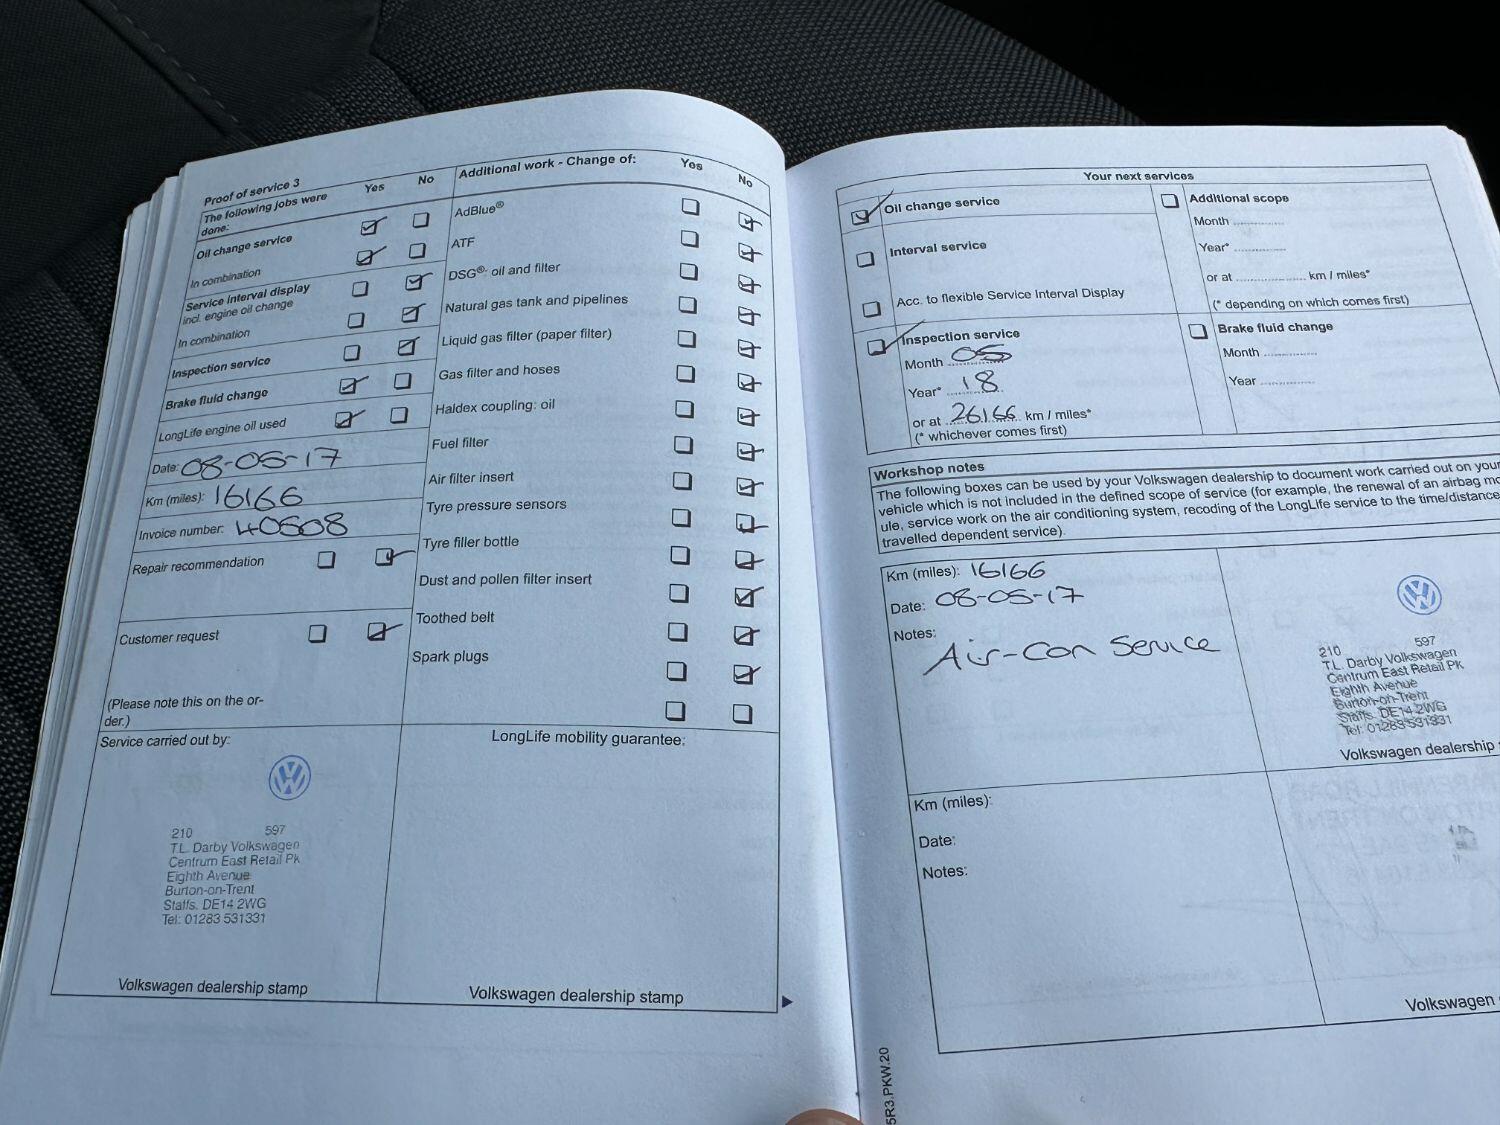 Proof of service 3
The following jobs were
done:
Yes
No
Oil change service
In combination
Service interval display
incl. engine oil change
In combination
Inspection service
Brake fluid change
LongLife engine oil used
Date: 08-05-17
Km (miles): 16166
Invoice number: 40508
Repair recommendation
Customer request
(Please note this on the or-
der.)
Additional work - Change of:
Yes
No
AdBlue®
ATF
DSG®: oil and filter
Natural gas tank and pipelines
Liquid gas filter (paper filter)
Gas filter and hoses
Haldex coupling: oil
Fuel filter
Air filter insert
Tyre pressure sensors
Tyre filler bottle
Dust and pollen filter insert
Toothed belt
Spark plugs
Service carried out by:
210 597
T.L. Darby Volkswagen
Centrum East Retail Pk
Eighth Avenue
Burton-on-Trent
Staffs. DE14 2WG
Tel: 01283 531331
Volkswagen dealership stamp
LongLife mobility guarantee:
Volkswagen dealership stamp
Your next services
Oil change service
Interval service
Acc. to flexible Service Interval Display
Inspection service
Month 05
Year* 18
or at 26166 km / miles*
(* whichever comes first)
Additional scope
Month
Year*
or at km / miles*
(* depending on which comes first)
Brake fluid change
Month
Year
Workshop notes
The following boxes can be used by your Volkswagen dealership to document work carried out on your
vehicle which is not included in the defined scope of service (for example, the renewal of an airbag mo
ule, service work on the air conditioning system, recoding of the LongLife service to the time/distance
travelled dependent service).
Km (miles): 16166
Date: 08-05-17
Notes:
Air-Con Service
210 597
T.L. Darby Volkswagen
Centrum East Retail Pk
Eighth Avenue
Burton-on-Trent
Staffs. DE14 2WG
Tel: 01283 531331
Volkswagen dealership
Km (miles):
Date:
Notes:
Volkswagen
5R3.PKW.20